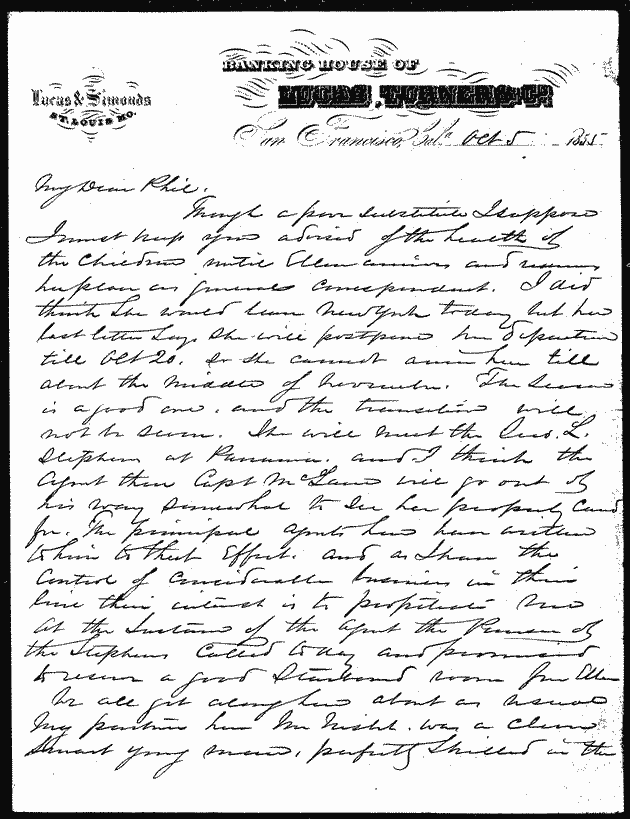 BANKING HOUSE OF
LUCAS, TURNER & CO.
Lucas & Simonds
ST. LOUIS MO.
San Francisco, Cal. Oct 5 1855
My Dear Phil.
Though a poor substitute I suppose
I must keep you advised of the health of
the children until Ellen arrives and resumes
her place as general correspondent. I did
think she would leave New York today but her
last letter says she will postpone her departure
till Oct 20. So she cannot arrive here till
about the middle of November. The season
is a good one, and the transition will
not be severe. She will meet the Jno. L.
Stephens at Panama. and I think the
agent there Capt McLane will go out of
his way somewhat to see her properly cared
for. The principal agents here have written
to him to that effect. and as I have the
control of considerable business in their
line their interest is to propitiate me
At the instance of the agent the Purser of
the Stephens called today and promised
to reserve a good starboard room for Ellen
We all get along here about as usual
My partner here Mr Nisbet was a clever
smart young man, perfectly skilled in the